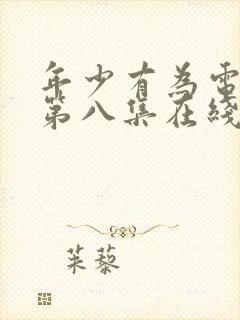 年少有為電
第八集在綫
茱藜